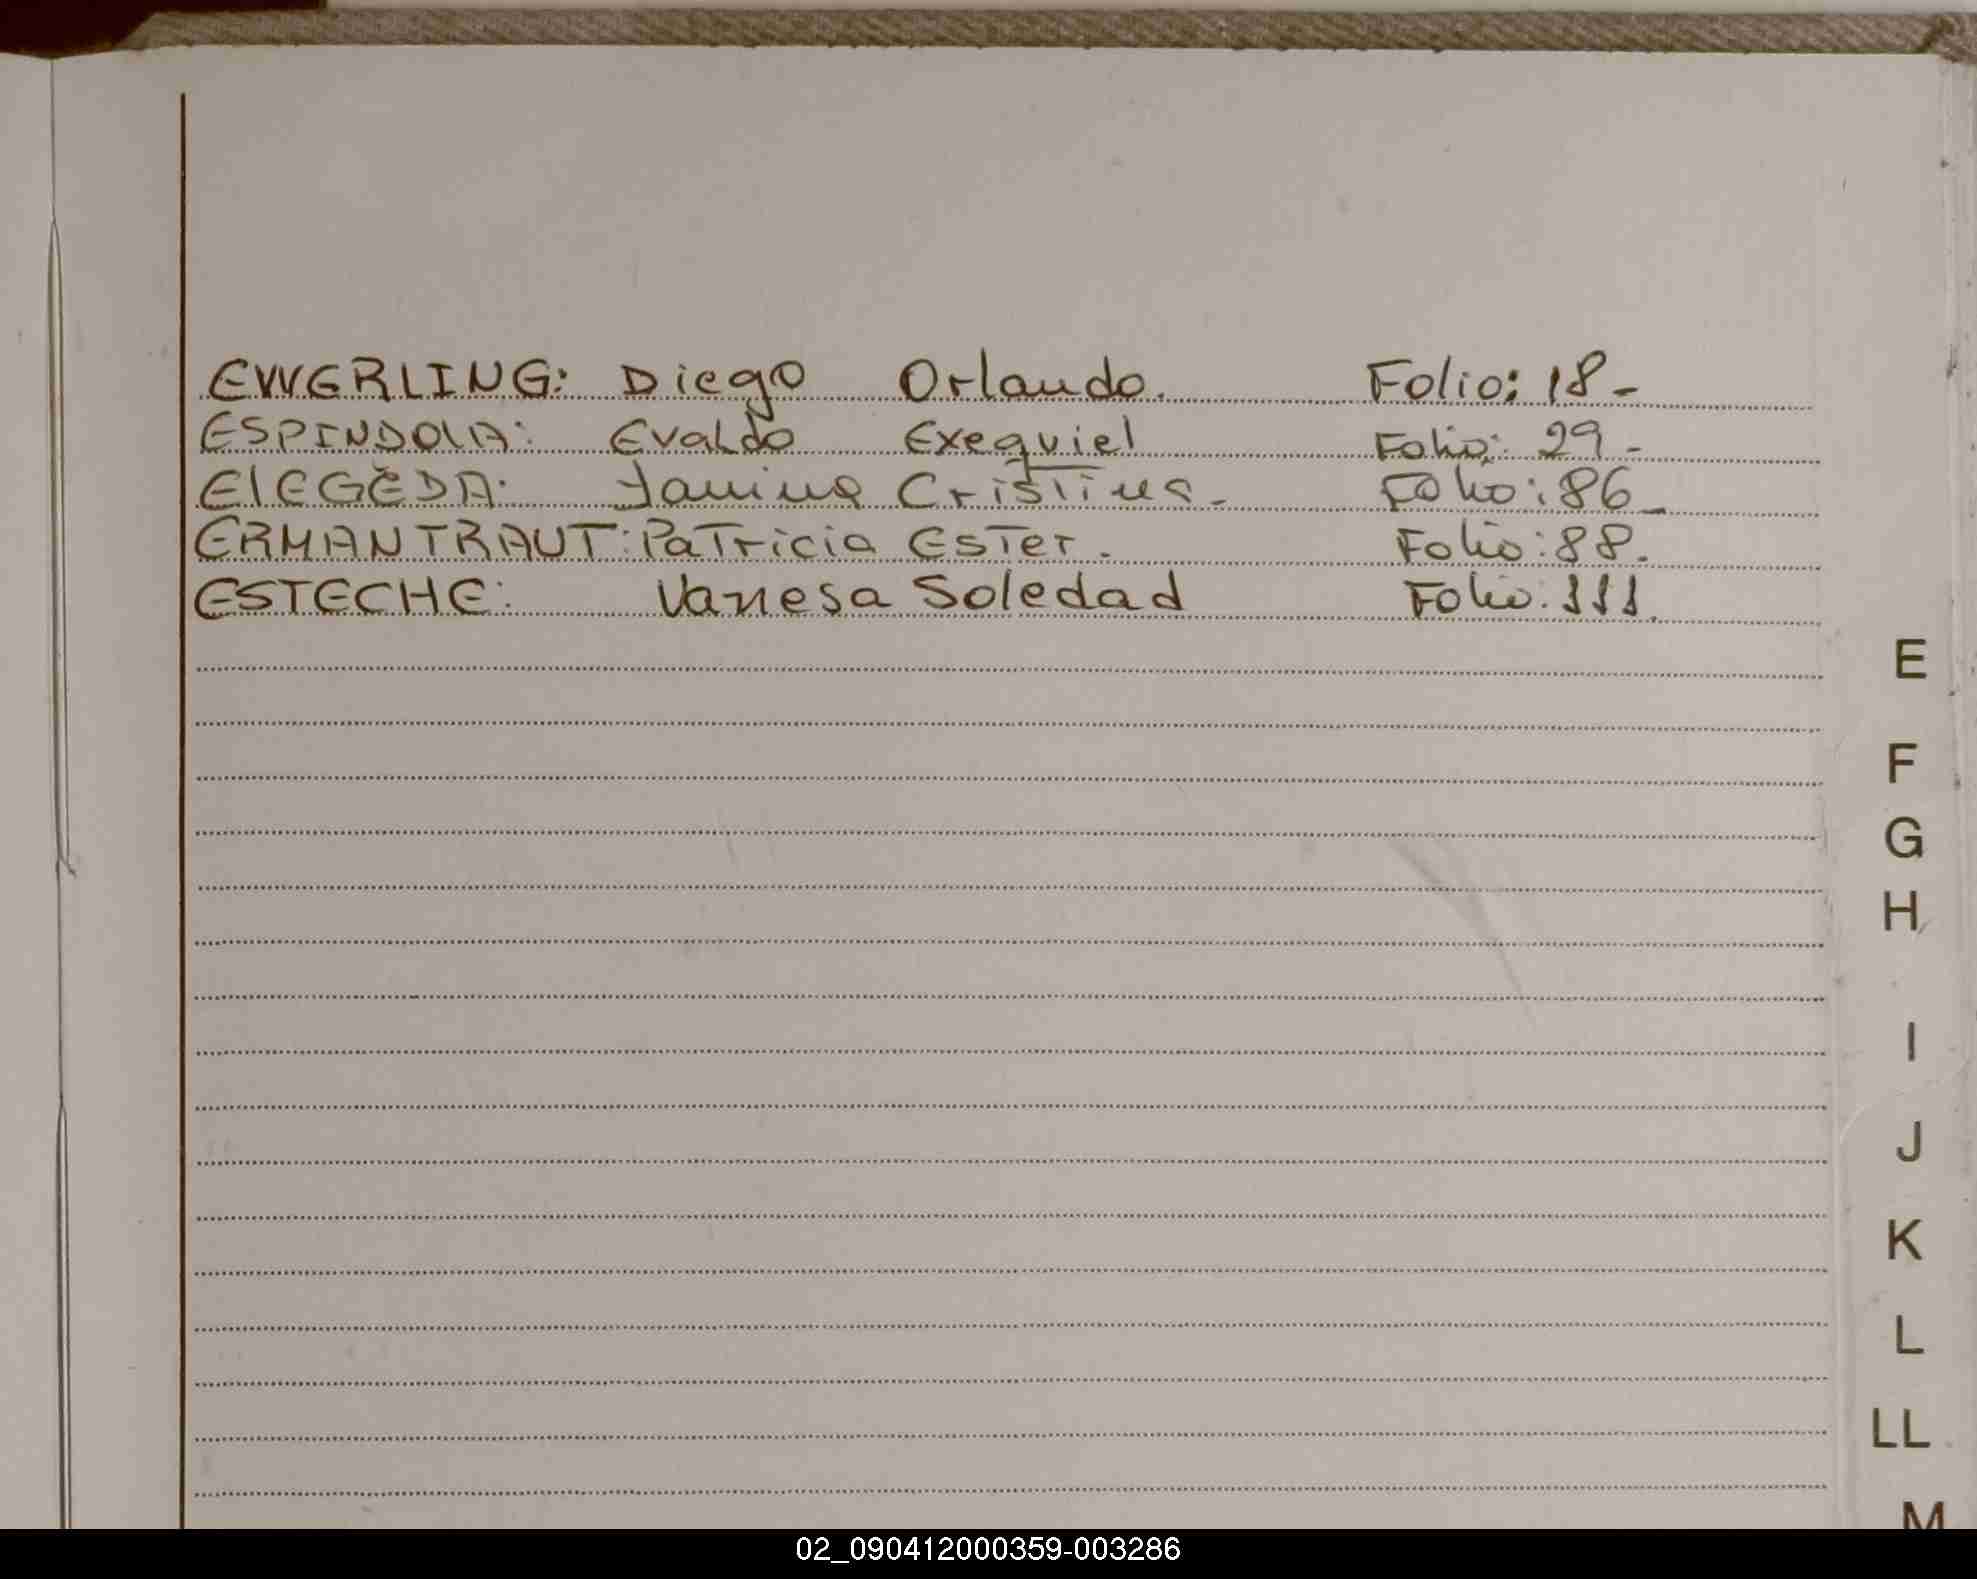 EWERLING: Diego Orlando. Folio: 18-
ESPINDOLA: Evaldo Exequiel Folio: 29-
ELEGEDA: Yanina Cristina- Folio: 86_
ERMANTRAUT: Patricia Ester. Folio: 88.
ESTECHE: Vanesa Soledad Folio: 111.
E
F
G
H
I
J
K
L
LL
M
02_090412000359-003286